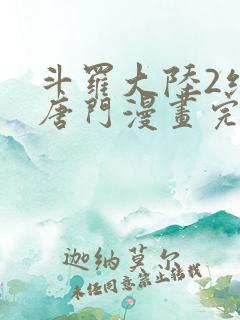 斗羅大陸2
唐門漫畫完
迦納莫尔
未经同意禁止转载